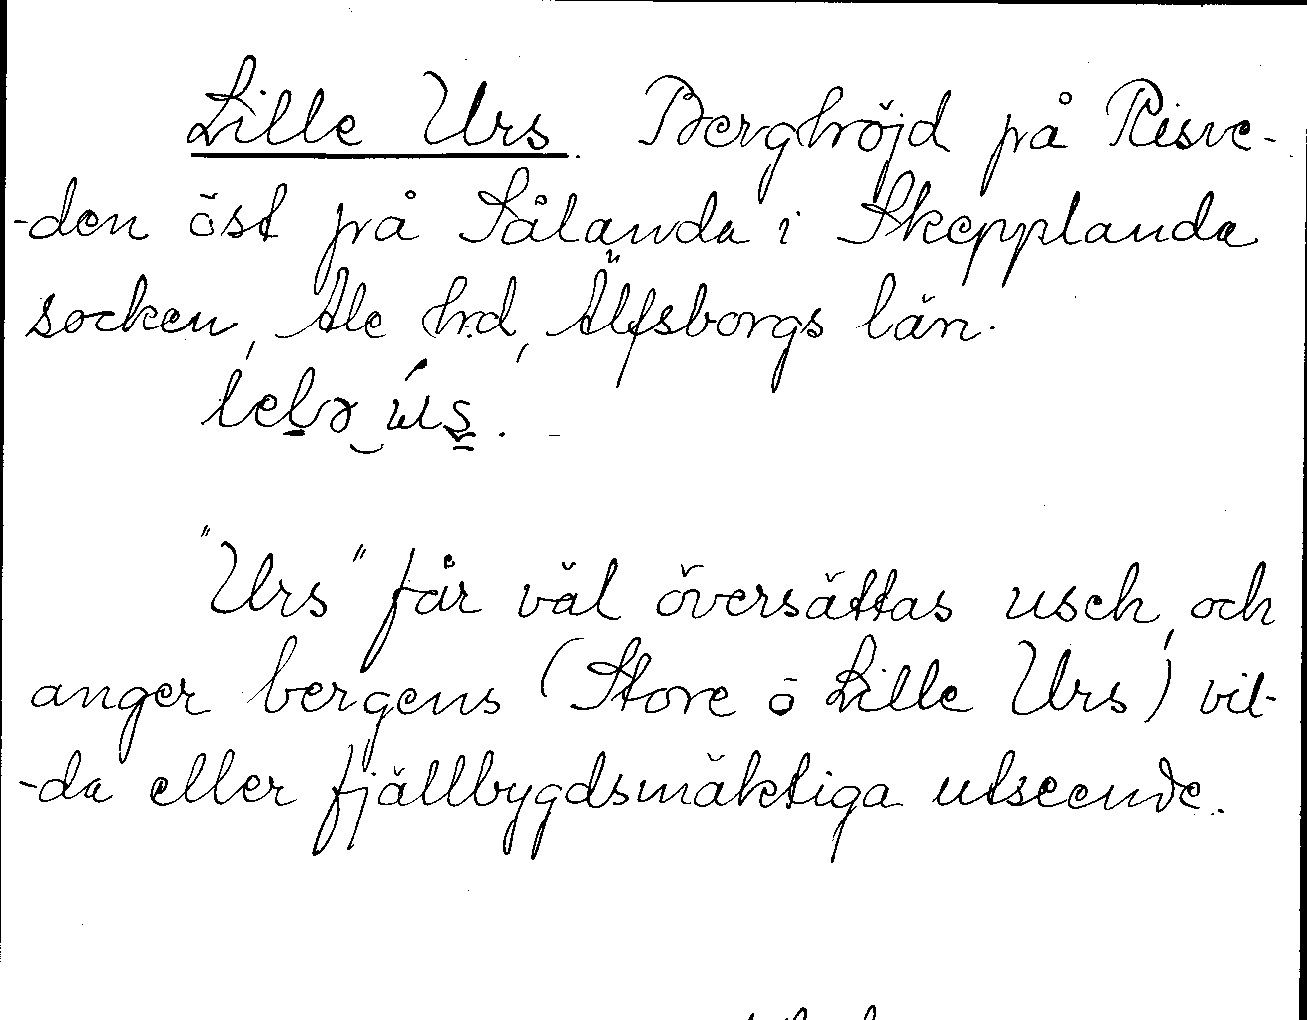 Lille Urs. Berghöjd på Risve-
-den öst på Sålanda i Skepplanda
socken, Ale hd, Älfsborgs län.
"Urs" får väl översättas usch, och
anger bergens (Store ö Lille Urs) vil-
-da eller fjällbygdsmäktiga utseende.